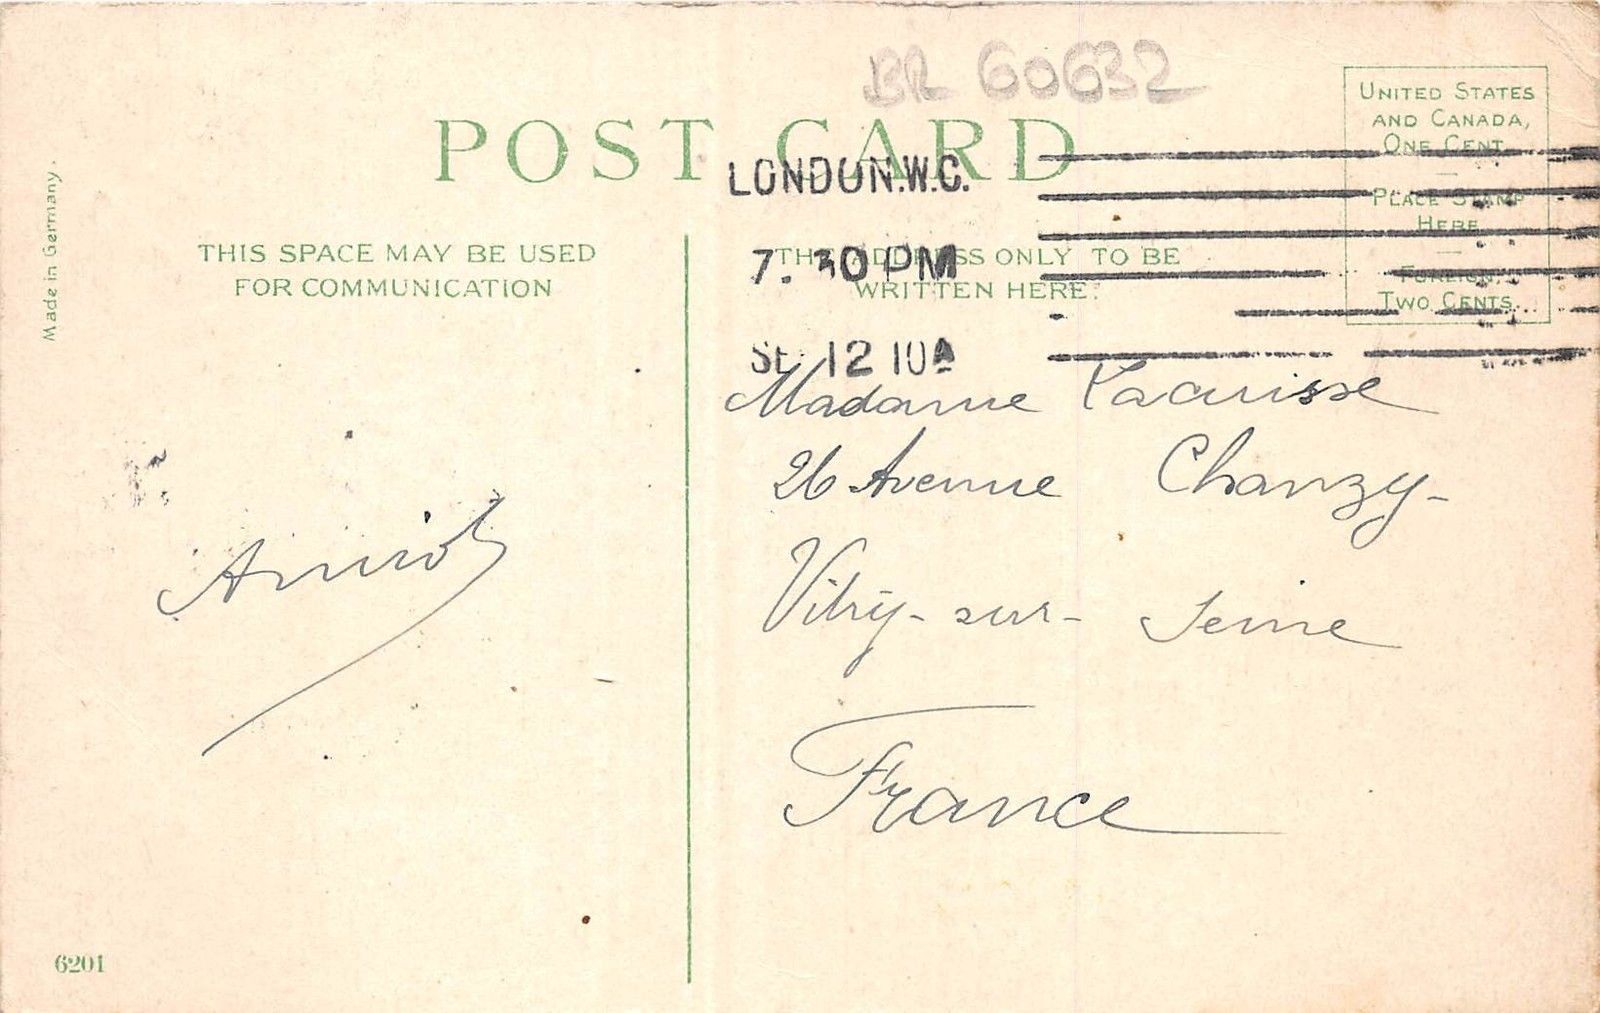 BR 60632
POST CARD
UNITED STATES
AND CANADA,
ONE CENT
PLACE STAMP
HERE
FOREIGN,
TWO CENTS.
LONDON.W.C.
7.30 PM
SE 12 10A
Made in Germany.
THIS SPACE MAY BE USED
FOR COMMUNICATION
THE ADDRESS ONLY TO BE
WRITTEN HERE.
Madame
26 Avenue Chanzy-
Vitry-sur-Seine
France
Amirol
6201